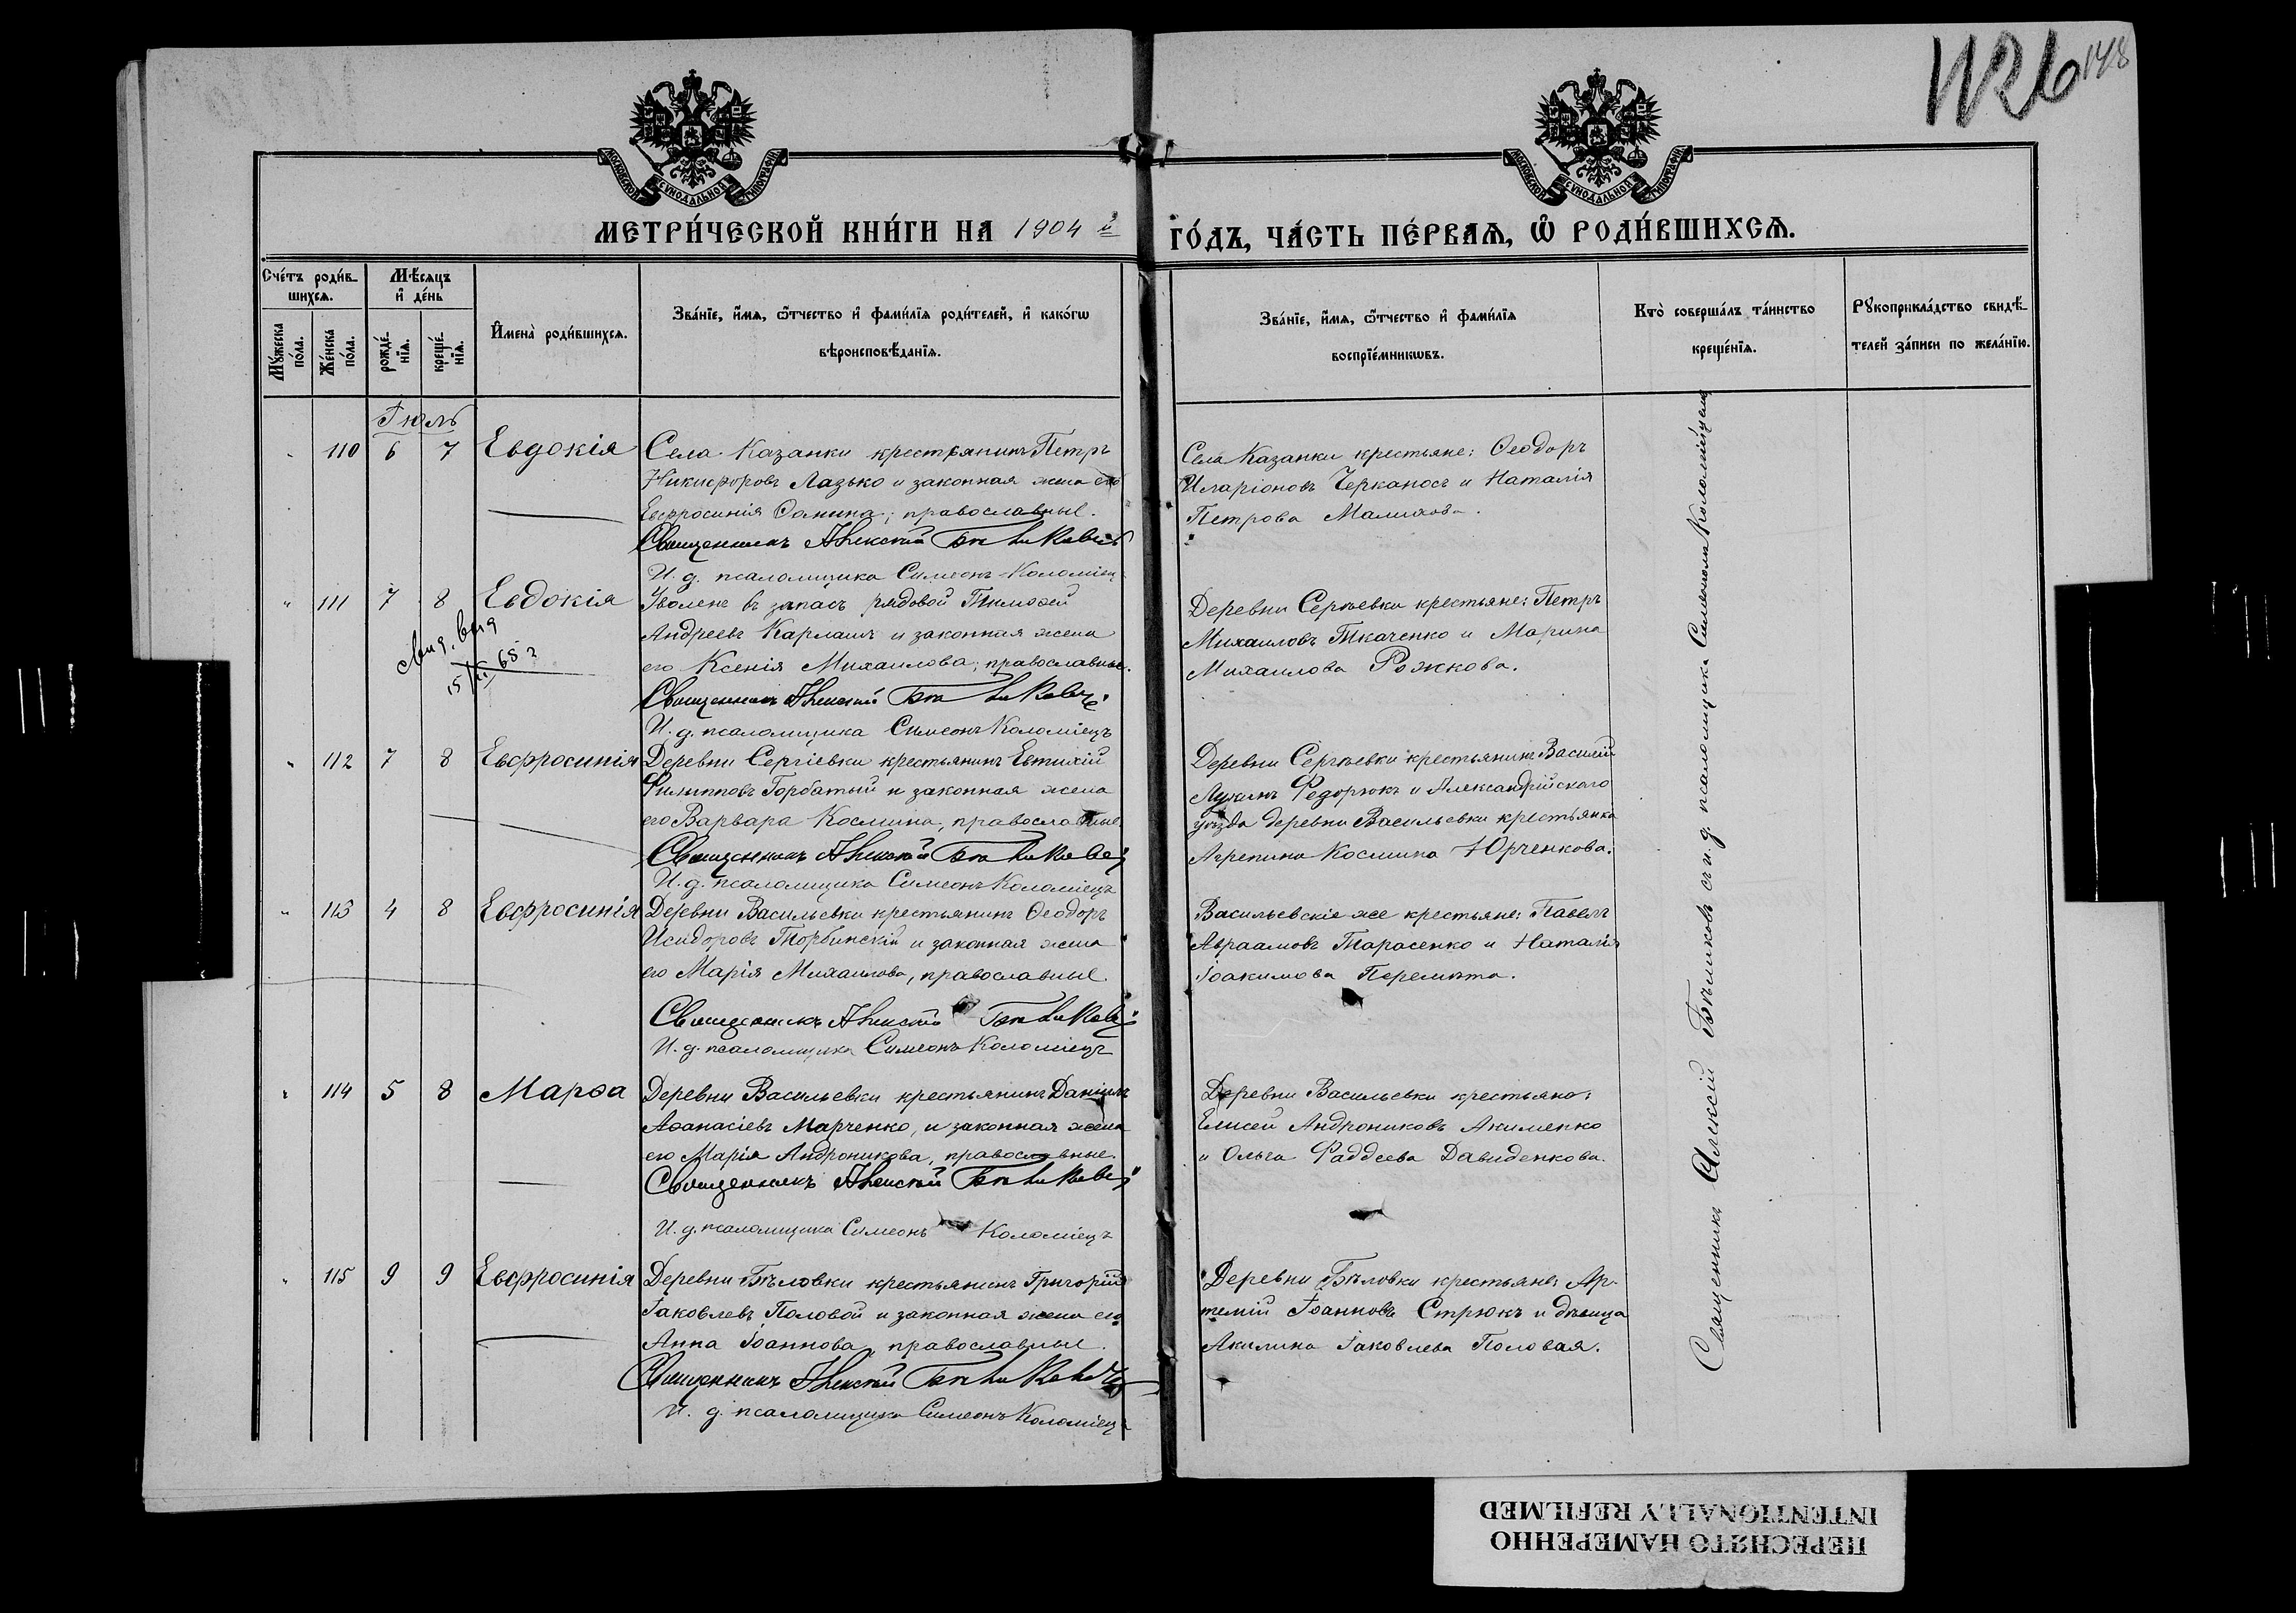 1126 148
МОСКОВСКОЙ СѴНОДАЛЬНОЙ ТИПОГРАФІИ
МОСКОВСКОЙ СѴНОДАЛЬНОЙ ТИПОГРАФІИ
МЕТРИ́ЧЕСКОЙ КНИ́ГИ НА 1904 й
ГО́ДЪ, ЧА́СТЬ ПЕ́РВАѦ, Ѡ҆ РОДИ́ВШИХСѦ.
Сче́тъ роди́в-
шихсѧ.
Мꙋ́жеска по́ла.
Же́нска по́ла.
Мѣ́сѧцъ
и҆ де́нь
рожде́-нїѧ.
креще́-нїѧ.
И҆мена̀ роди́вшихсѧ.
Зва́нїе, и҆́мѧ, ѻ҆́тчество и҆ фами́лїѧ роди́телей, и҆ како́гѡ
вѣроисповѣ́данїѧ.
Зва́нїе, и҆́мѧ, ѻ҆́тчество и҆ фами́лїѧ
воспрїе́мникѡвъ.
Кто̀ соверша́лъ та́инство
креще́нїѧ.
Рꙋкоприкла́дство свидѣ́-
телей за́писи по жела́нїю.
Іюль
110 6 7 Евдокія
Села Казанки крестьянинъ Петръ
Никифоровъ Лазько и законная жена его
Евфросинія Ѳомина; православные.
Священникъ Алексѣй
И. д. псаломщика Симеонъ Коломіец
Села Казанки крестьяне: Ѳеодоръ
Иларіоновъ Черканосъ и Наталія
Петрова
111 7 8 Евдокія
15/ 65 г
Уволен. въ запасъ рядовой Тимоѳей
Андреевъ Кармашъ и законная жена
его Ксенія Михаилова; православные.
Священникъ Алексѣй
И. д. псаломщика Симеонъ Коломіецъ
Деревни Сергѣевки крестьяне: Петръ
Михаиловъ Ткаченко и Марина
Михаилова Рожкова.
112 7 8 Евфросинія
Деревни Сергіевки крестьянинъ Евтихій
Филипповъ Горбатый и законная жена
его Варвара Космина, православные
Священникъ Алексѣй
И. д. псаломщика Симеонъ Коломіецъ
Деревни Сергѣевки крестьянинъ Василій
Лукинъ Федорюкъ и Александрійскаго
уѣзда деревни Васильевки крестьянка
Агрепина Космина Юрченкова.
113 4 8 Евфросинія
Деревни Васильевки крестьянинъ Ѳеодоръ
Исидоровъ Торбинскій и законная жена
его Марія Михаилова, православные.
Священникъ Алексѣй
И. д. псаломщика Симеонъ Коломіецъ
Васильевскіе же крестьяне: Павелъ
Авраамовъ Тарасенко и Наталія
Іоакимова Перемита.
114 5 8 Марѳа
Деревни Васильевки крестьянинъ Даніилъ
Аѳанасіевъ Марченко, и законная жена
его Марія Андроникова, православные.
Священникъ Алексѣй
И. д. псаломщика Симеонъ Коломіецъ
Деревни Васильевки крестьяне:
Елисей Андрониковъ Акименко
и Ольга Фаддеева Давиденкова.
115 9 9 Евфросинія
Деревни Бѣловки крестьянинъ Григорій
Іаковлевъ Половой и законная жена его
Анна Іоаннова, православные.
Священникъ Алексѣй
И. д. псаломщика Симеонъ Коломіецъ
Деревни Бѣловки крестьяне: Ар-
темій Іоанновъ Стрюкъ и дѣвица
Акилина Іаковлева Половая.
Священникъ Алексѣй Бѣликовъ съ и. д. псаломщика Симеономъ Коломійцемъ
ПЕРЕСНЯТО НАМЕРЕННО
INTENTIONALLY REFILMED